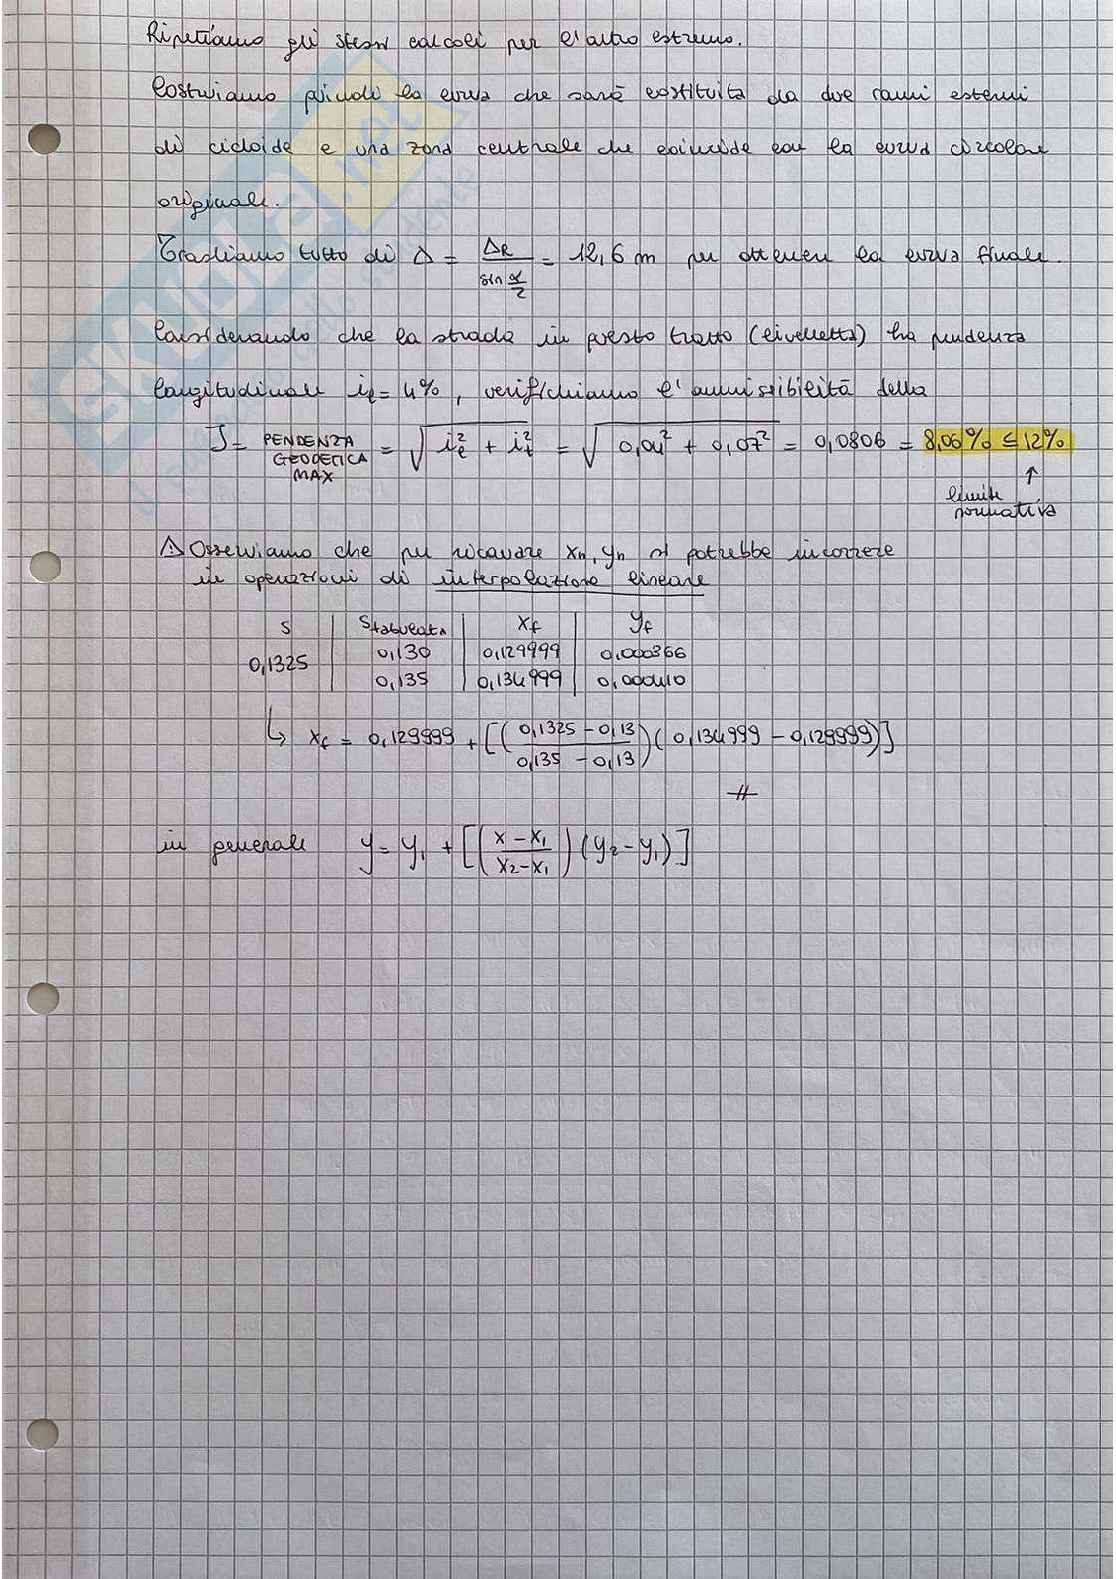 Ripetiamo gli stessi calcoli per l'altro estremo.
Costruiamo quindi la curva che sarà costituita da due rami esterni
di cicloide e una zona centrale che coincide con la curva circolare
originale.
Trasliamo tutto di Δ = ΔR / sin α/2 = 12,6 m per ottenere la curva finale.
Considerando che la strada in questo tratto (livelletta) ha pendenza
longitudinale il = 4%, verifichiamo l'ammissibilità della
J = PENDENZA GEODETICA MAX = √(il² + it²) = √(0,04² + 0,07²) = 0,0806 = 8,06% ≤ 12%
↑
limite
normativa
⚠ Osserviamo che per ricavare xn, yn si potrebbe incorrere
in operazioni di interpolazione lineare
s | s tabulata | xf | yf
0,1325 | 0,130 | 0,129999 | 0,000366
0,135 | 0,134999 | 0,000410
↳ xf = 0,129999 + [((0,1325 - 0,13) / (0,135 - 0,13)) (0,134999 - 0,129999)]
#
in generale y = y1 + [((x - x1) / (x2 - x1)) (y2 - y1)]
SKUOLA.net